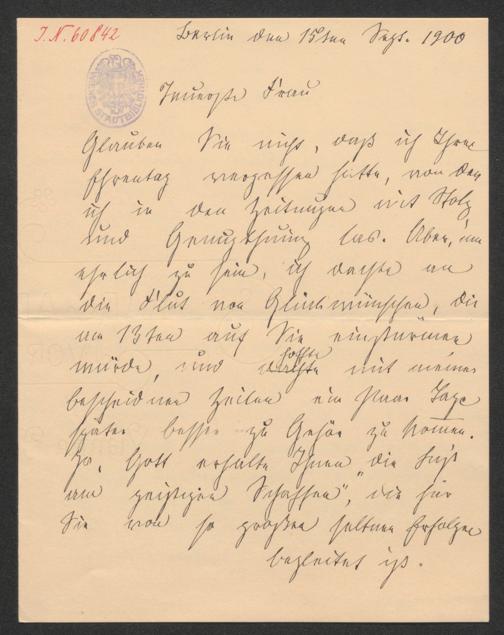 I.N. 60842
Berlin den 15ten Sept. 1900
Teuerste Frau
Glauben Sie nicht, daß ich Ihren
Ehrentag vergessen hatte, von dem
ich in den Zeitungen mit Stolz
und Genugthuung las. Aber, um
ehrlich zu sein, ich dachte an
die Flut von Glückwünschen, die
am 13ten auf Sie einstürmen
würde, und hoffte mit meinen
bescheidnen Zeilen ein Paar Tage
später besser zu Gehör zu kommen.
Ja, Gott erhalte Ihnen „die Lust
am geistigen Schaffen“, die für
Sie von so großen seltnen Erfolgen
begleitet ist.